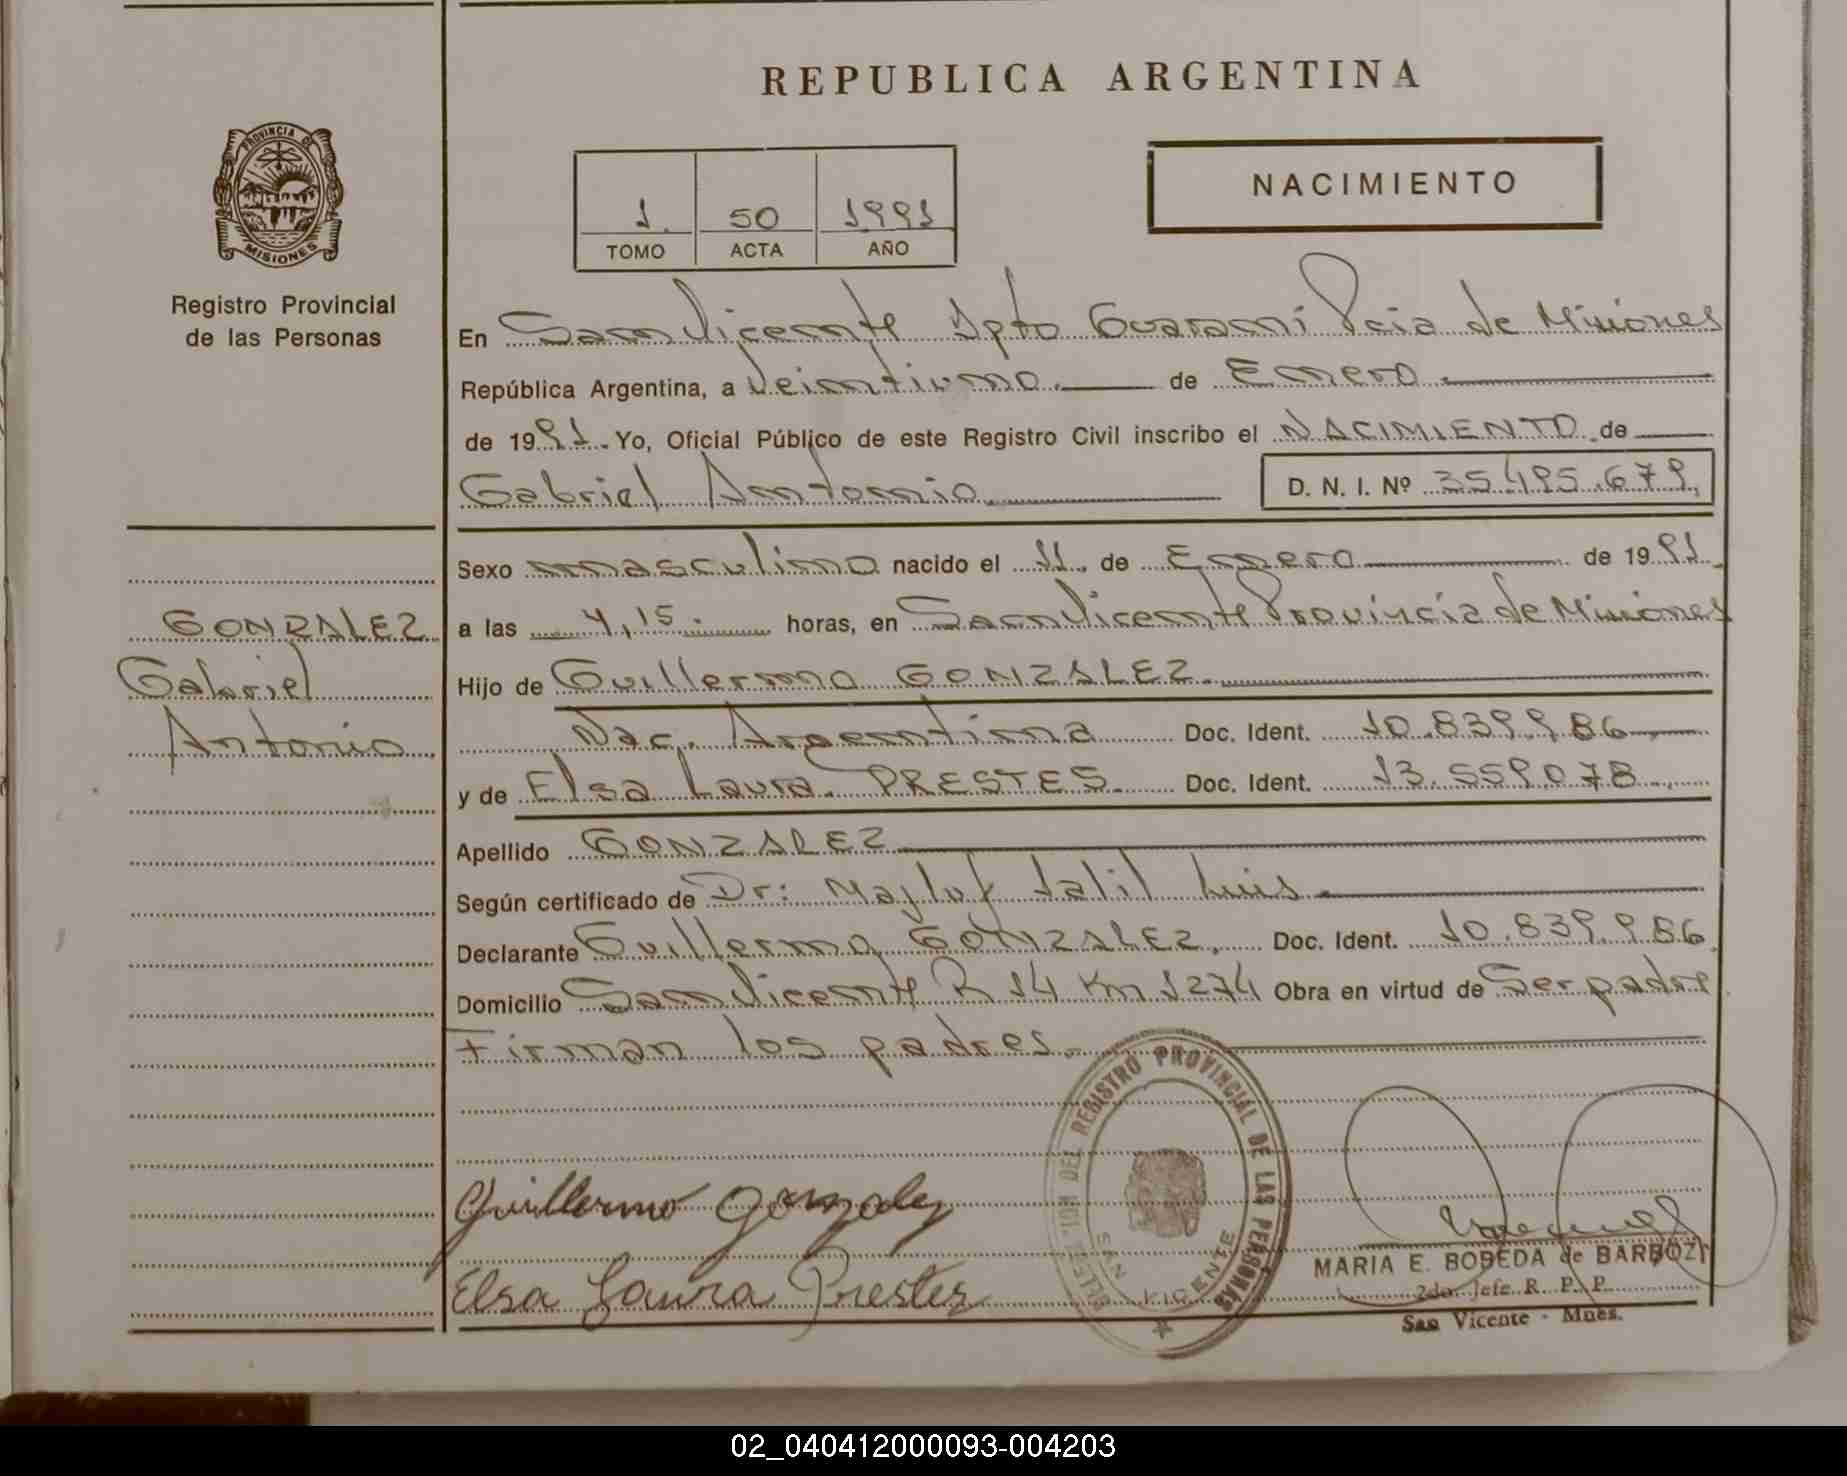 REPUBLICA ARGENTINA
PROVINCIA DE
MISIONES
Registro Provincial
de las Personas
1. 50 1991
TOMO ACTA AÑO
NACIMIENTO
En San Vicente Dpto Guarani Pcia de Misiones
República Argentina, a Veintiuno. de Enero
de 1991. Yo, Oficial Público de este Registro Civil inscribo el NACIMIENTO de
Gabriel Antonio D. N. I. Nº 35.495.679.
Sexo masculino nacido el 11. de Enero de 1991.
a las 4,15. horas, en San Vicente Provincia de Misiones
Hijo de Guillermo GONZALEZ.
Nac. Argentina Doc. Ident. 10.839.986
y de Elsa Laura PRESTES. Doc. Ident. 13.559.078
Apellido GONZALEZ
Según certificado de Dr: Jalil Luis.
Declarante Guillermo GONZALEZ. Doc. Ident. 10.839.986
Domicilio San Vicente R 14 Km 1274 Obra en virtud de Ser padre
Firman los padres.
GONZALEZ
Gabriel
Antonio
Guillermo Gonzalez
Elsa Laura Prestes
DEL REGISTRO PROVINCIAL DE LAS PERSONAS
SAN VICENTE
MARIA E. BOBEDA de BARBOZA
2do. Jefe R. P. P.
San Vicente - Mnes.
02_040412000093-004203